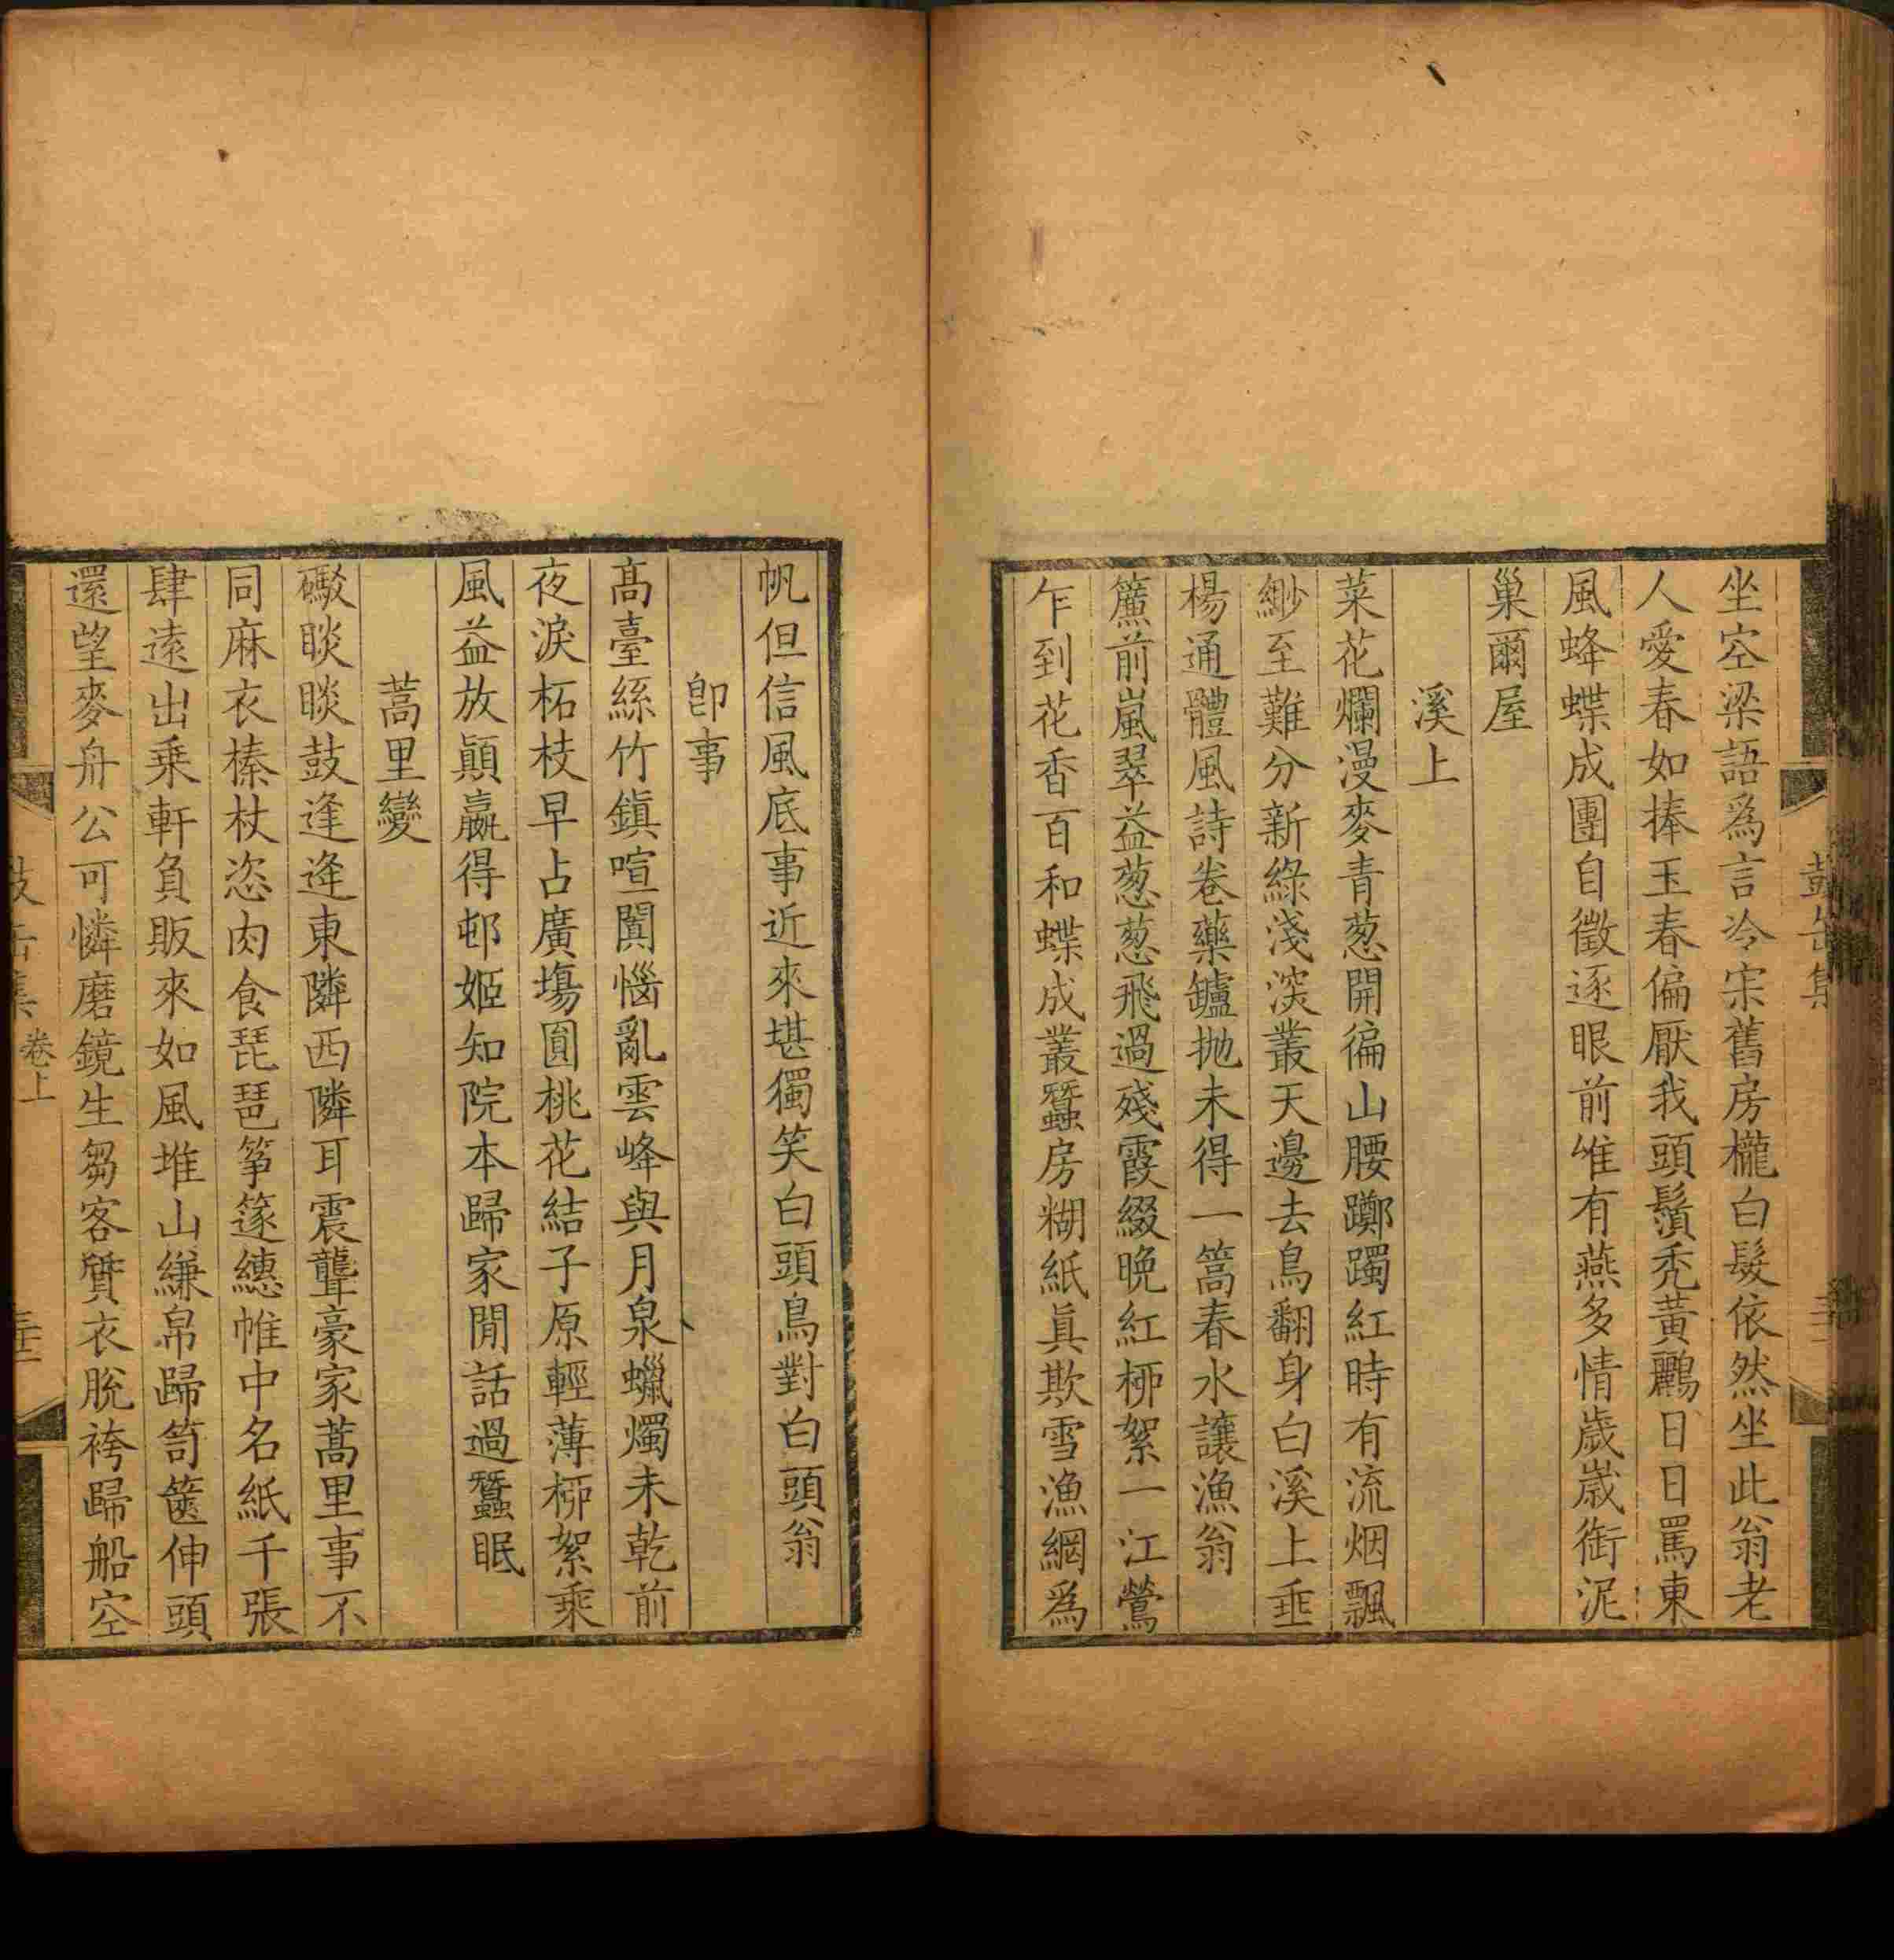 坐空梁語為言冷宋舊房櫳白髮依然坐此翁老
人愛春如捧玉春偏厭我頭鬚禿黃鸝日日罵東
風蜂蝶成團自徵逐眼前唯有燕多情歲歲銜泥
巢爾屋
溪上
菜花爛漫麥青葱開徧山腰躑躅紅時有流烟飄
緲至難分新綠淺深叢天邊去鳥翻身白溪上垂
楊通體風詩卷藥鑪拋未得一篙春水讓漁翁
簾前嵐翠益葱葱飛過殘霞綴晚紅桺絮一江鶯
乍到花香百和蝶成叢蠶房糊紙眞欺雪漁網為
帆但信風底事近來堪獨笑白頭鳥對白頭翁
卽事
高臺絲竹鎭喧闐惱亂雲峰與月泉蠟燭未乾前
夜淚柘枝早占廣塲圓桃花結子原輕薄桺絮乘
風益放顚贏得邨姬知院本歸家閒話過蠶眠
蒿里變
礮睒睒鼓逢逄東隣西隣耳震聾豪家蒿里事不
同麻衣榛杖恣肉食琵琶筝篴繐帷中名紙千張
肆遠出乘軒負販來如風堆山縑帛歸笥篋伸頭
還望麥舟公可憐磨鏡生芻客贊衣脫袴歸船空
卷上